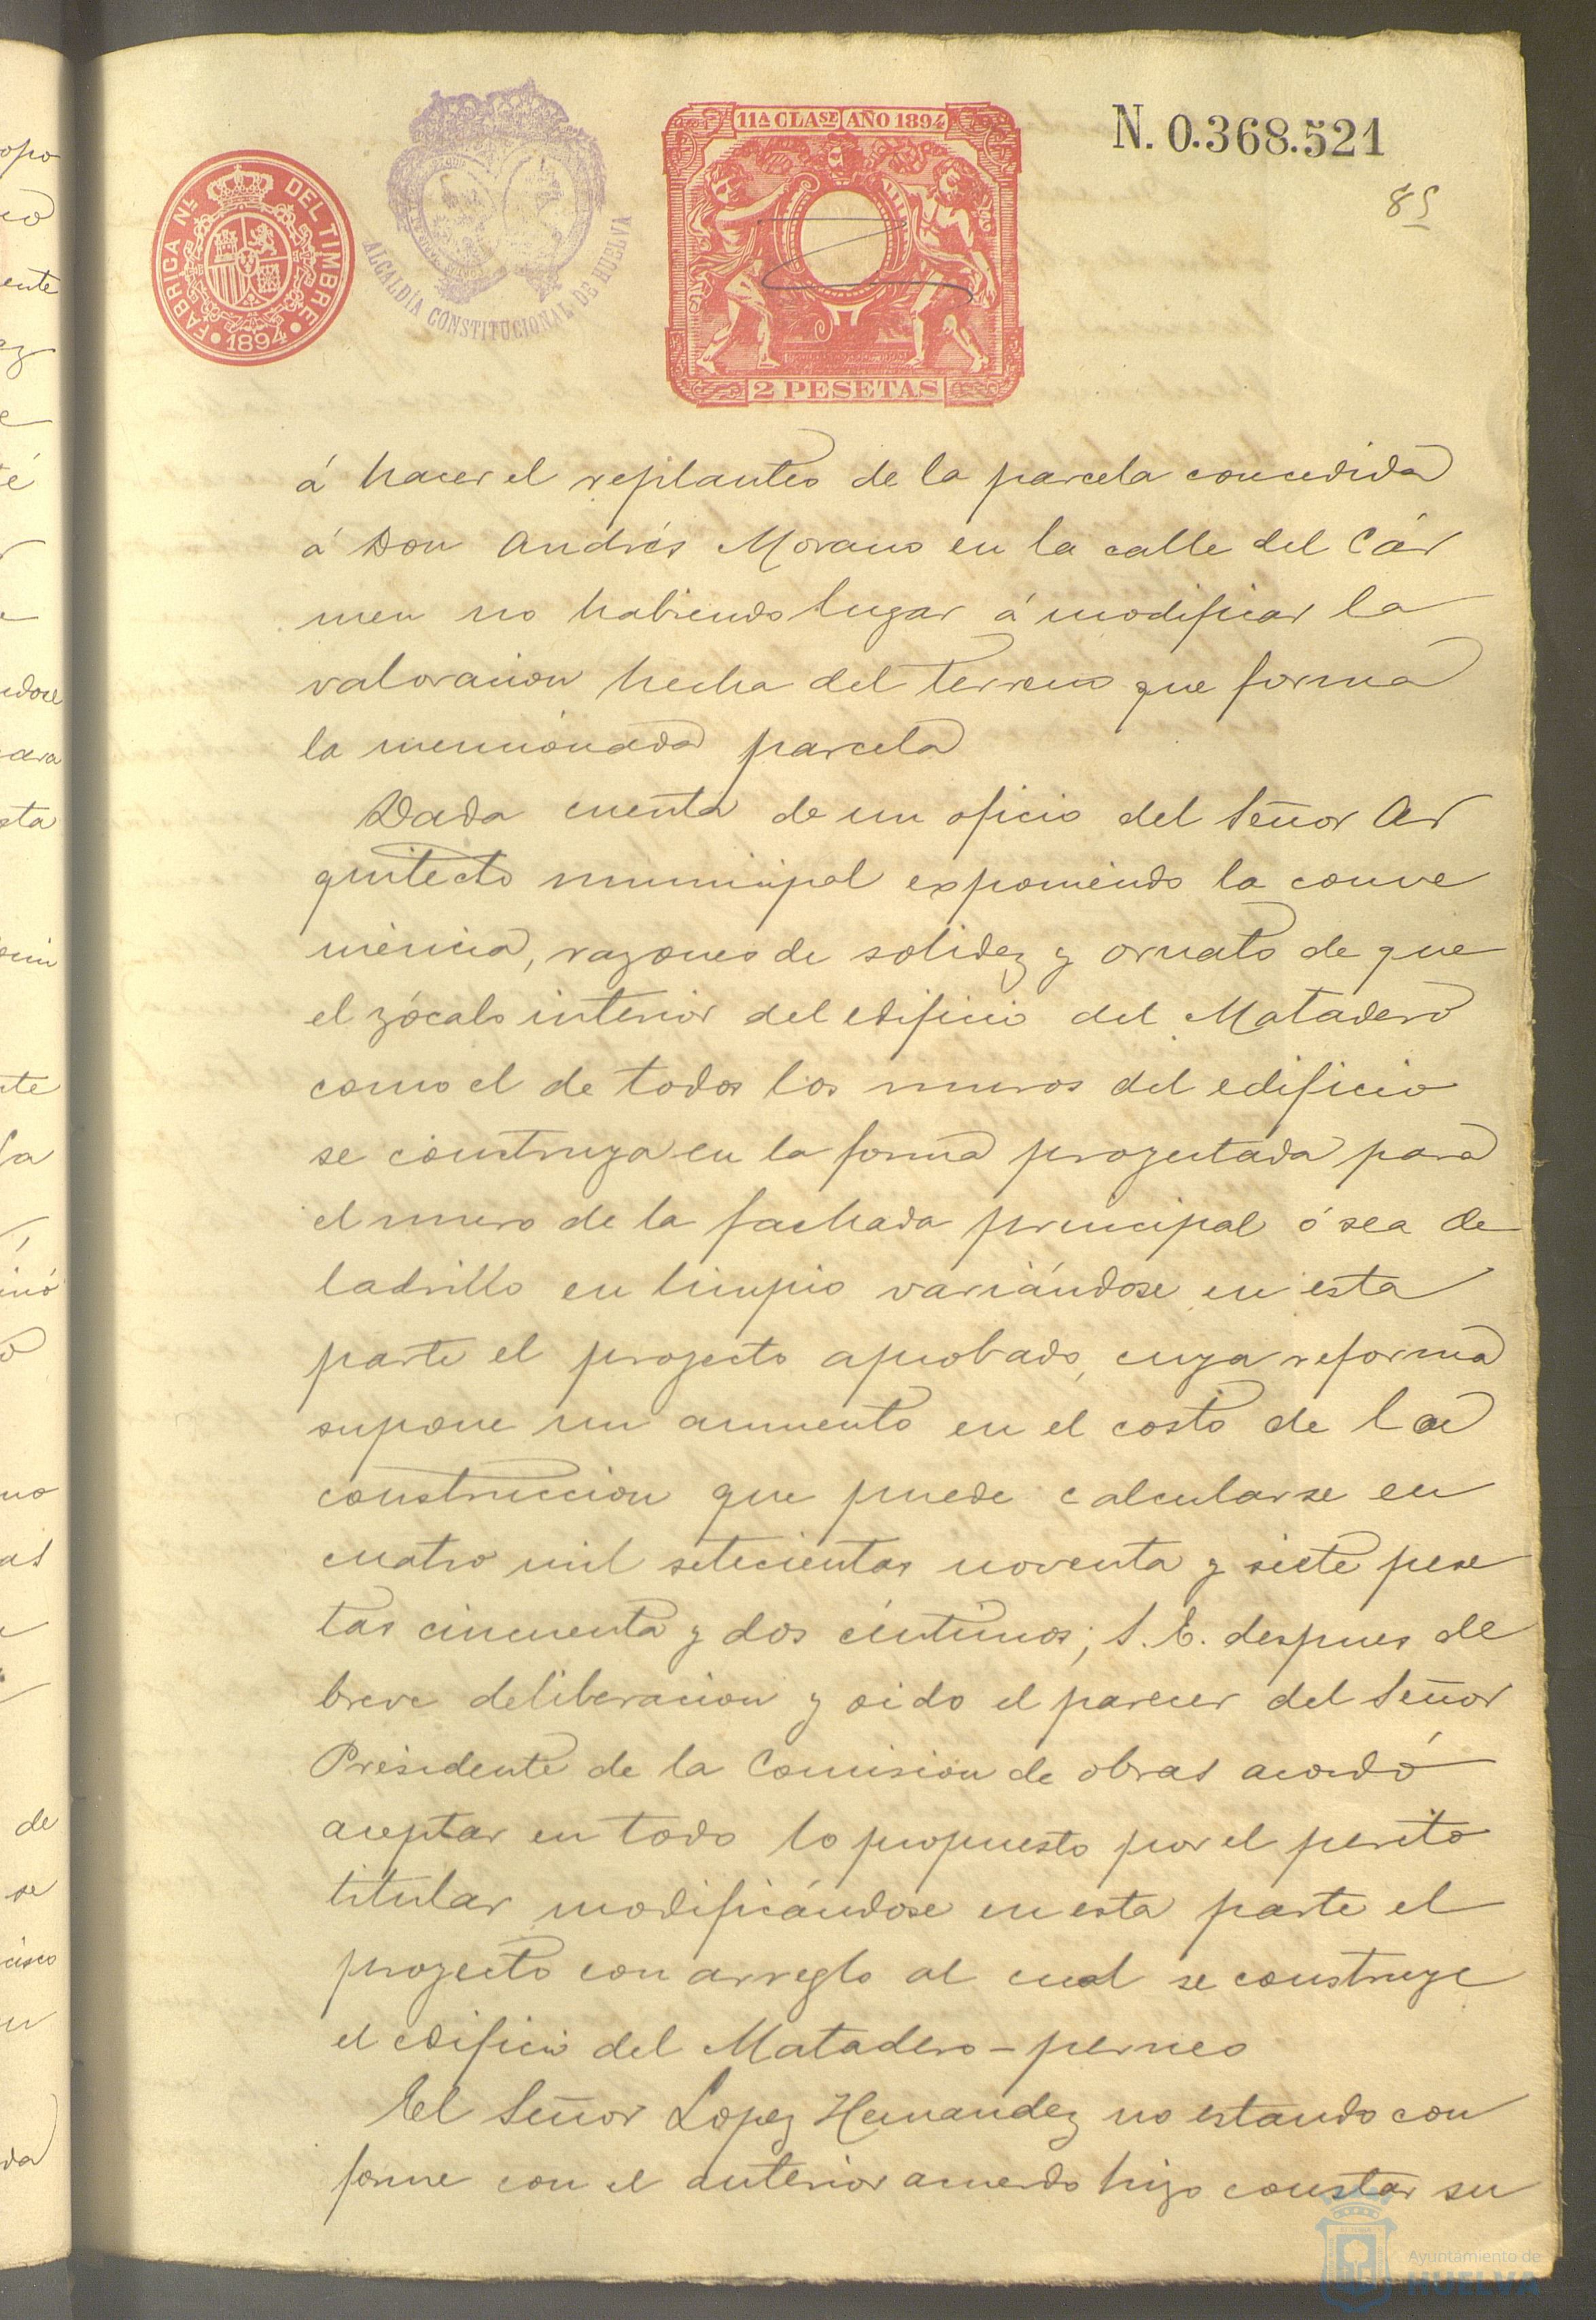 11ª CLASE AÑO 1894
N. 0.368.521
85
FABRICA Nᴸ DEL TIMBRE
1894
ALCALDÍA CONSTITUCIONAL DE HUELVA
2 PESETAS
á hacer el replanteo de la parcela concedida
á Don Andrés Morano en la calle del Cár
men no habiendo lugar á modificar la
valoracion hecha del terreno que forma
la mencionada parcela
Dada cuenta de un oficio del Señor Ar
quitecto municipal exponiendo la conve
niencia, razones de solidez y ornato de que
el zócalo interior del edificio del Matadero
como el de todos los muros del edificio
se construya en la forma proyectada para
el muro de la fachada principal ó sea de
ladrillo en limpio variándose en esta
parte el proyecto aprobado, cuya reforma
supone un aumento en el costo de la
construccion que puede calcularse en
cuatro mil setecientas noventa y siete pese
tas cincuenta y dos céntimos; S. E. despues de
breve deliberacion y oido el parecer del Señor
Presidente de la Comision de obras acordó
aceptar en todo lo propuesto por el perito
titular modificándose en esta parte el
proyecto con arreglo al cual se construye
el edificio del Matadero-perneo
El Señor Lopez Hernandez no estando con
forme con el anterior acuerdo hizo constar su
Ayuntamiento de
HUELVA